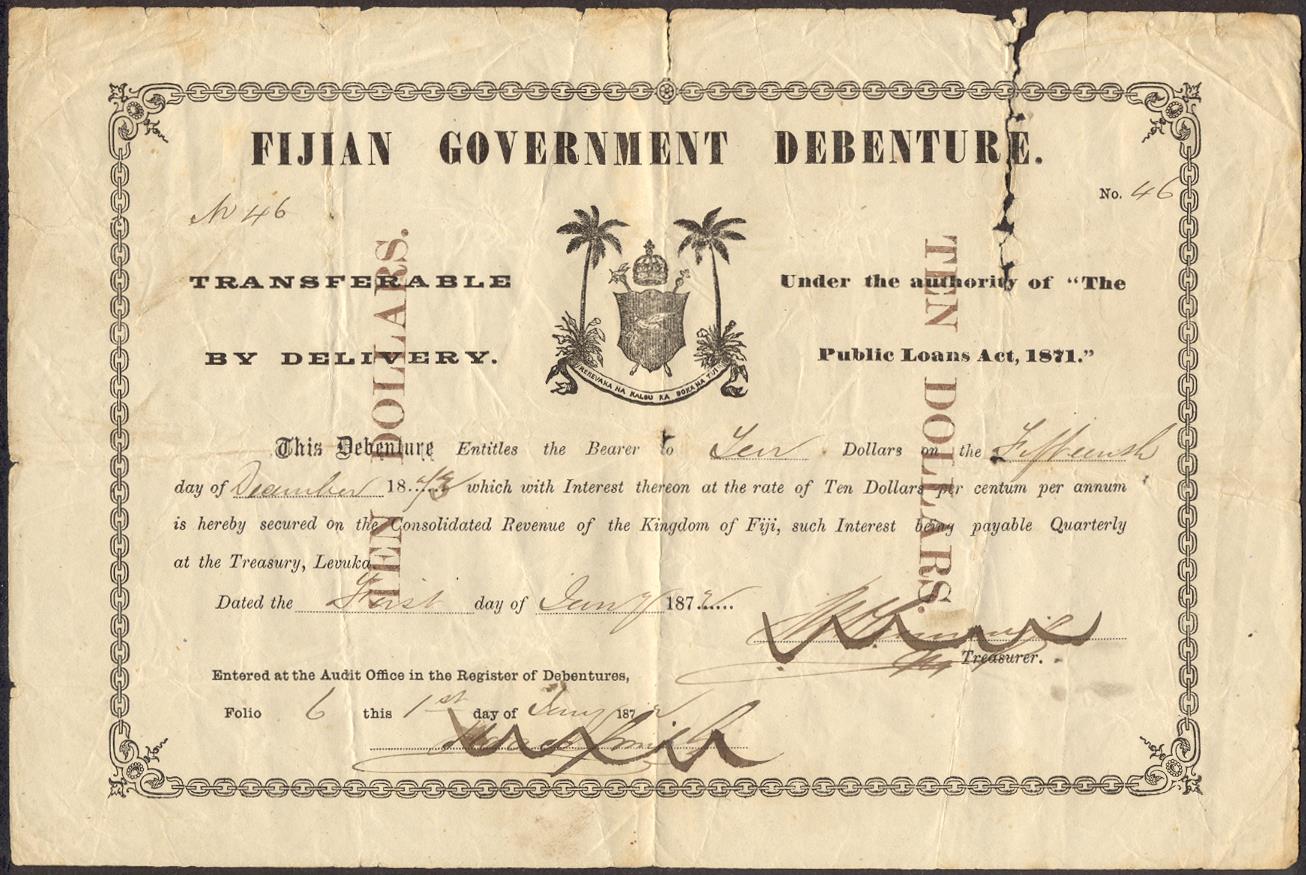 FIJIAN GOVERNMENT DEBENTURE.
No 46
No. 46
TRANSFERABLE
BY DELIVERY.
Under the authority of "The
Public Loans Act, 1871."
REREVAKA NA KALOU KA DOKA NA TUI
TEN DOLLARS.
TEN DOLLARS.
This Debenture Entitles the Bearer to Ten Dollars on the Fifteenth
day of December 18..73 which with Interest thereon at the rate of Ten Dollars per centum per annum
is hereby secured on the Consolidated Revenue of the Kingdom of Fiji, such Interest being payable Quarterly
at the Treasury, Levuka.
Dated the First day of Jany 1872
Treasurer.
Entered at the Audit Office in the Register of Debentures,
Folio 6 this 1st day of Jany 1872